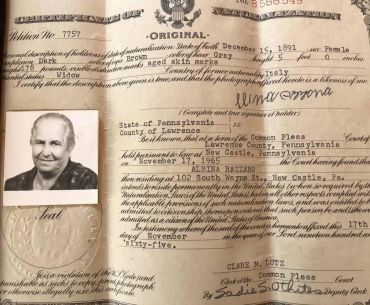 CERTIFICATE OF NATURALIZATION
No. 8588549
ORIGINAL
Petition No 7757
Personal description of holder as of date of naturalization: Date of birth December 15, 1891 sex Female
complexion Dark color of eyes Brown color of hair Gray height 5 feet 0 inches
weight 178 pounds, visible distinctive marks aged skin marks
Marital status Widow Country of former nationality Italy
I certify that the description above given is true, and that the photograph affixed hereto is a likeness of me.
(Complete and true signature of holder)
State of Pennsylvania
County of Lawrence
Be it known, that at a term of the Common Pleas Court of
Lawrence County, Pennsylvania
held pursuant to law at New Castle, Pennsylvania
on November 17, 1965 the Court having found that
ALBINA RAZZANO
then residing at 102 South Wayne St., New Castle, Pa.
intends to reside permanently in the United States (when so required by the
Naturalization Laws of the United States), had in all other respects complied with
the applicable provisions of such naturalization laws, and was entitled to be
admitted to citizenship, thereupon ordered that such person be and (s)he was
admitted as a citizen of the United States of America.
In testimony whereof the seal of the court is hereunto affixed this 17th
day of November in the year of our Lord nineteen hundred and
sixty-five.
Seal
It is a violation of the U.S. Code and
punishable as such to copy, print, photograph,
or otherwise illegally use this certificate.
CLARE M. LUTZ
Clerk of the Common Pleas Court
By Sadie S. Deputy Clerk.